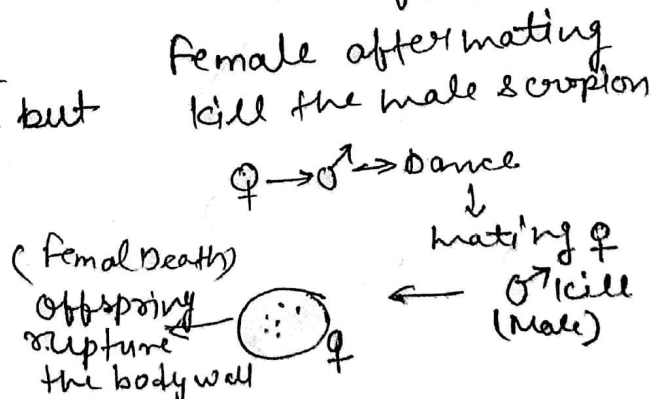 Female after mating
but kill the male scorpion
♀ → ♂ → Dance
↓
mating ♀
♂ kill
(Male)
←
♀
(Femal Death)
offspring
rupture
the body wall